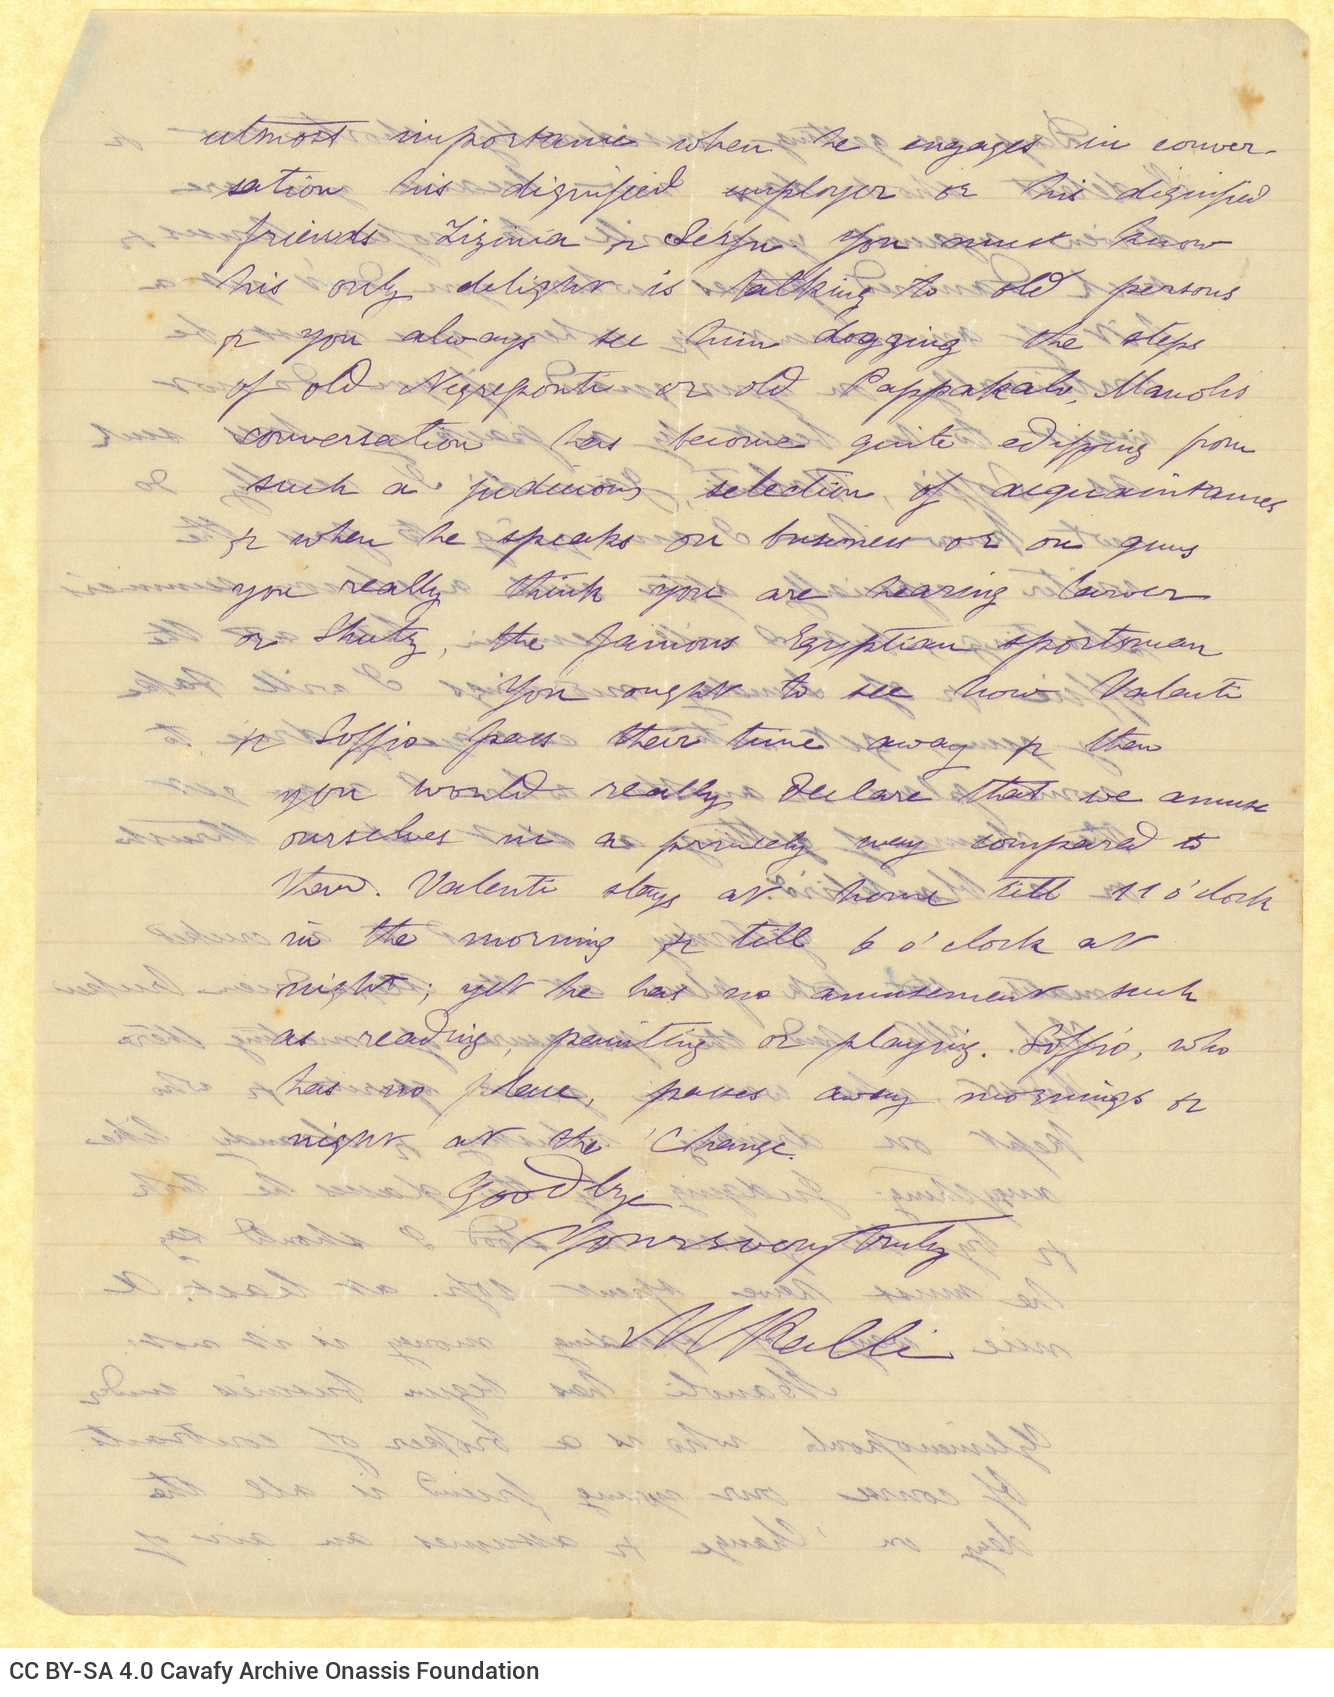 utmost importance when he engages in conver-
sation his dignified employer or his dignified
friends Zizinia & You must know
his only delight is talking to old persons
& you always see him dogging the steps
of old Negreponti or old Pappakalo, Manolis
conversation has become quite edifying from
such a judicious selection of acquaintances
& when he speaks on business or on guns
you really think you are hearing Carver
or Shutz, the famous Egyptian sportsman
You ought to see how Valenti
& Soffio pass their time away & then
you would really declare that we amuse
ourselves in a princely way compared to
them. Valenti stays at home till 11 o'clock
in the morning & till 6 o'clock at
night; yet he has no amusement such
as reading, painting or playing. Soffio, who
has no place, passes away mornings &
night at the 'Change.
Goodbye
Yours very truly
M Ralli
CC BY-SA 4.0 Cavafy Archive Onassis Foundation